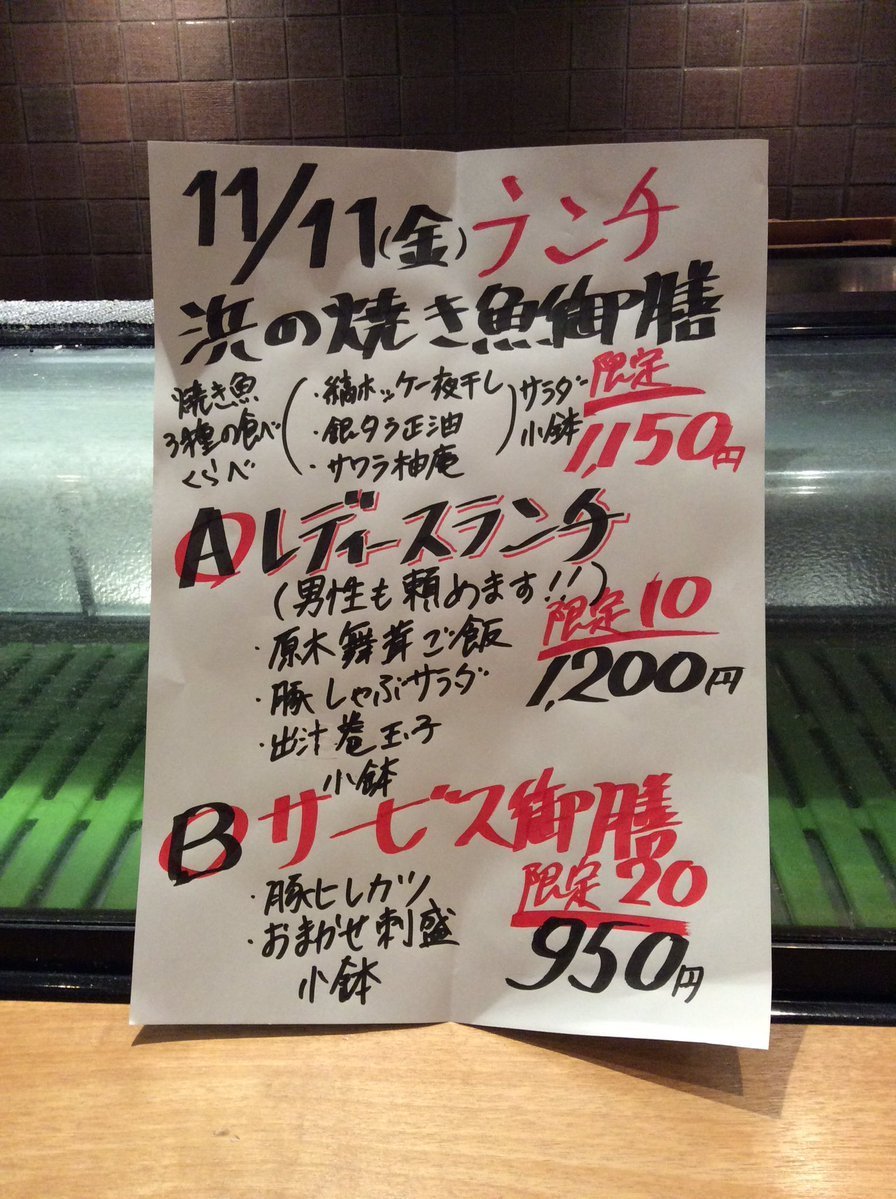 11/11(金)ランチ
浜の焼き魚御膳
焼き魚
3種の食べ
くらべ
・縞ホッケ一夜干し
・銀タラ正油
・サワラ柚庵
サラダ
小鉢
限定
1,150円
Aレディースランチ
(男性も頼めます!!)
・原木舞茸ご飯
・豚しゃぶサラダ
・出汁巻玉子
小鉢
限定10
1,200円
Bサービス御膳
・豚ヒレカツ
・おまかせ刺盛
小鉢
限定20
950円